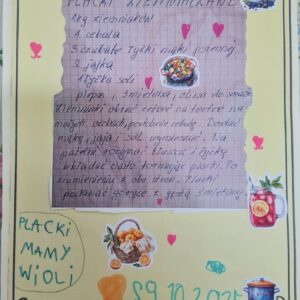 PLACKI ZIEMNIACZANE
1kg ziemniaków
1 cebula
3 czubate łyżki mąki pszennej
2 jajka
1 łyżka soli
pieprz, śmietana, oliwa do smaż.
Ziemniaki obrać zetrzeć na tartce na
małych oczkach, podobnie cebulę. Dodać
mąkę, jaja i sól, wymieszać. Na
patelni rozgrzać tłuszcz i łyżką
wkładać ciasto formując placki. Po
zrumienieniu z obu stron. Placki
podawać gorące z gęstą śmietaną.
PLACKI
MAMY
WIOLI
29.10.2025